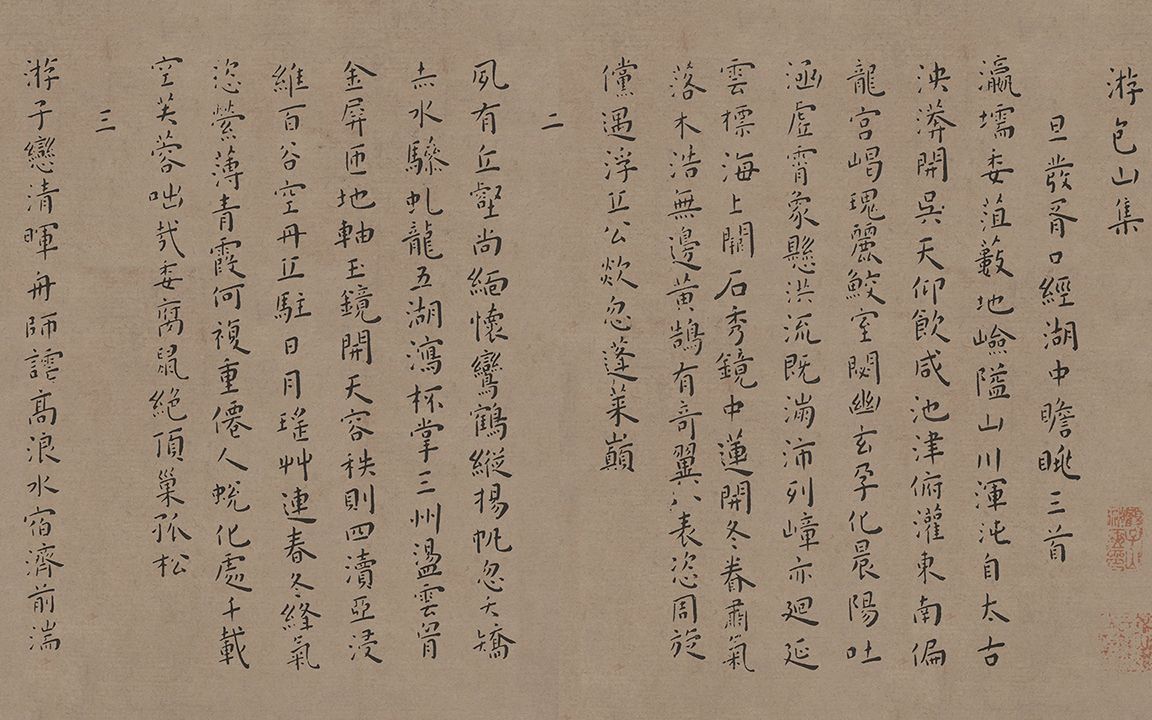 游包山集
旦發胥口經湖中瞻眺三首
瀛壖委菹藪地嶮隘山川渾沌自太古
泱漭開吳天仰飲咸池津俯灌東南偏
龍宮嵑瑰麗鮫室閟幽玄孕化晨陽吐
涵虛霄象懸洪流既滂沛列嶂亦迴延
雲標海上闕石秀鏡中蓮開冬眷肅氣
落木浩無邊黃鵠有奇翼八表恣周旋
儻遇浮丘公欻忽蓬萊巔
二
夙有丘壑尚緬懷鸞鶴縱揚帆忽天矯
赤水驂虬龍五湖瀉杯掌三州盪雲胷
金屏匝地軸玉鏡開天容秩則四瀆亞浸
維百谷空丹丘駐日月瑤艸連春冬絳氣
恣縈薄青霞何複重僊人蛻化處千載
空芙蓉咄哉委腐鼠絕頂巢孤松
三
游子戀清暉舟師譁高浪水宿濟前湍